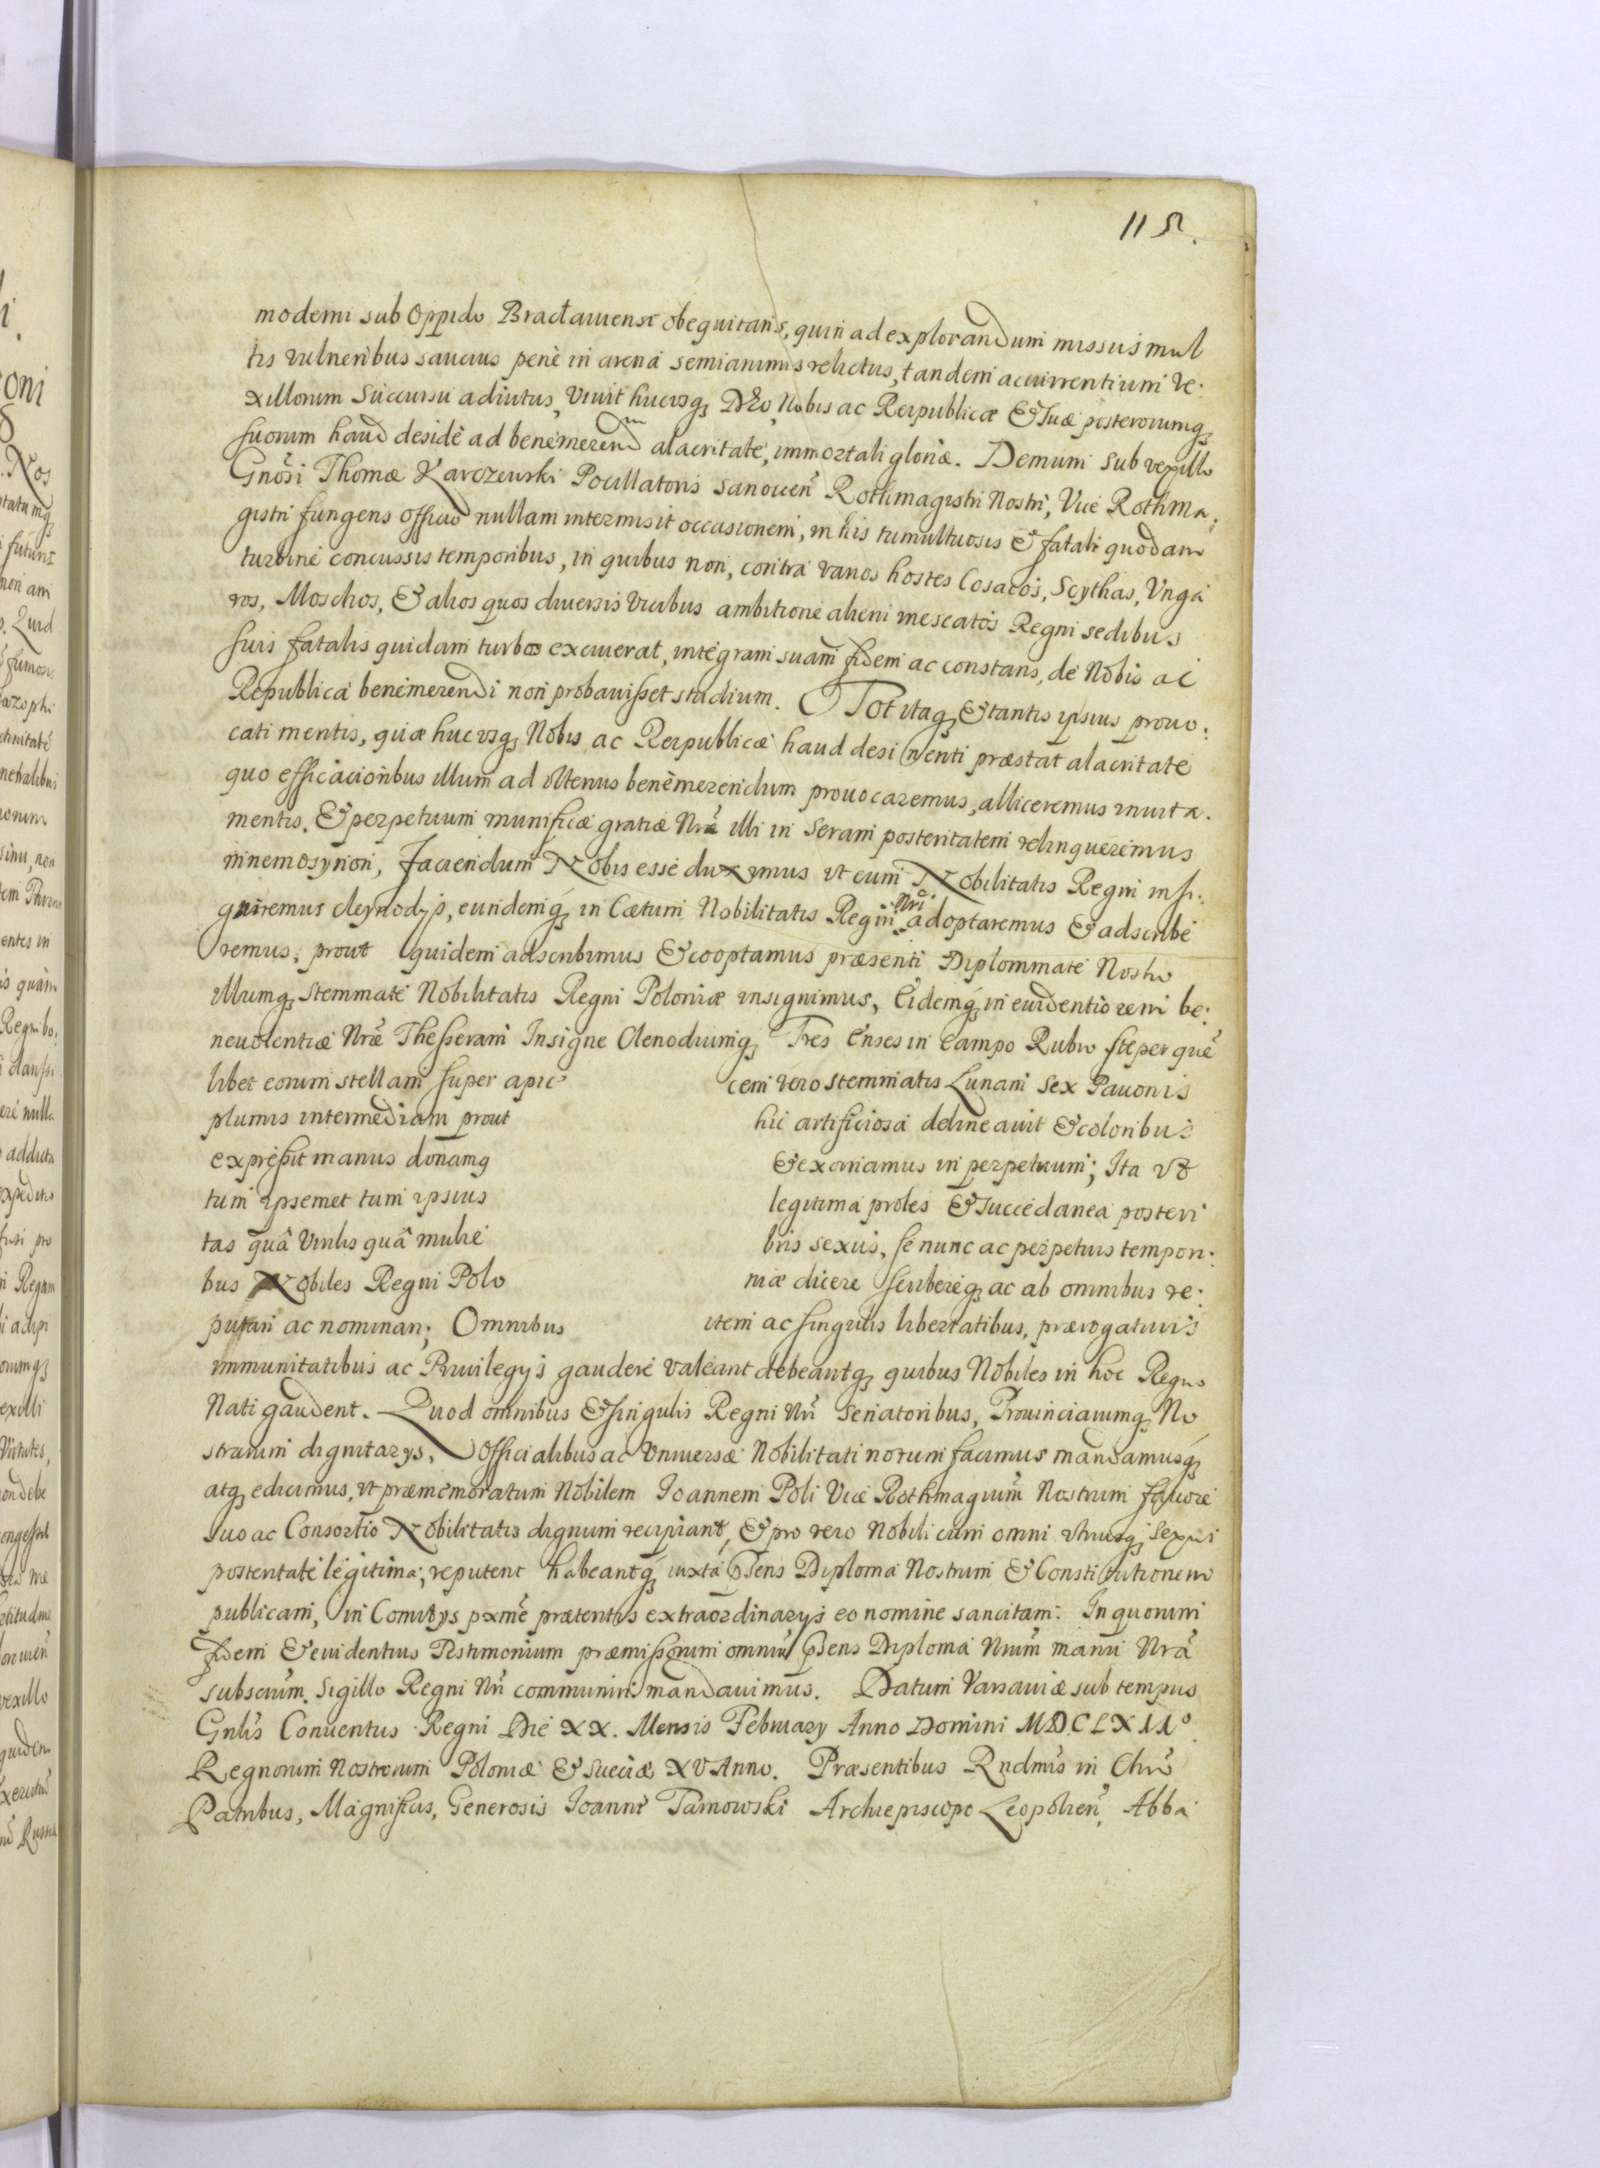 115.
modemi sub Oppido Bractauiensi obequitans, quin ad explorandum missus mul
tis vulneribus saucius penè in arená semianimis relictus, tandem accurrentium ve:
xillorum Succursu adiutus, viuit hucusq; Deo, Nobis ac Reipublicæ & suæ posterorumq;
suorum haud desidè ad benèmerendm alacritate, immortali gloriæ. Demum sub vexillo
Gnõsi Thomæ Karczewski Pocillatoris Sanocen̄ Rothmagistri Nostri, Vice Rothma:
gistri fungens officio nullam intermisit occasionem, in his tumultuosis & fatali quodam
turbine concussis temporibus, in quibus non, contra varios hostes Cosacos, Scythas, Vnga
ros, Moschos, & alios quos diuersis viribus ambitione alieni mescatos Regni sedibus
suis fatalis quidam turbo exciuerat, integram suam fidem ac constans, de Nobis ac
Republicá benèmerendi non probauisset studium. Tot itaq; & tantis ipsius prouo:
cati mentis, quæ hucusq; Nobis ac Reipublicæ haud desinenti præstat alacritate
quo efficacioribus illum ad vltenus benèmerendum prouocaremus, alliceremus inuita.
mentis, & perpetuum munificæ gratiæ Nræ̃ illi in Seram posteritatem relinqueremus
mnemosynon, Faciendum Nobis esse duximus vt eum Nobilitatis Regni insi:
gniremus cleynodijs, eundemq; in Cætum Nobilitatis Regni Nri adoptaremus & adscribe
remus, prout quidem adscribimus & cooptamus præsenti Diplommate Nostro
illumq; Stemmate Nobilitatis Regni Poloniæ insignimus, Eidemq; in euidentiorem be:
neuolentiæ Nræ̃ Thesseram Insigne Clenodiumq; Tres Enses in Campo Rubro super que
libet eorum stellam super apic cem vero stemmatis Lunam Sex Pauonis
plumis intermediam prout hic artificiosa delineauit & coloribus
expressit manus donamq & exornamus in perpetuum; Ita vt
tum ipsemet tum ipsius legitima proles & succedanea posteri
tas quâ virilis quâ mulie bris sexus, se nunc ac perpetuis tempori:
bus Nobiles Regni Polo niæ dicere scribereq; ac ab omnibus re:
putari ac nominari; Omnibus item ac singulis libertatibus, prærogatiuis
immunitatibus ac Priuilegijs gaudere valeant debeantq; quibus Nobiles in hoc Regno
Nati gaudent. Quod omnibus & singulis Regni Nri̅ Senatoribus, Prouinciarumq; No
strarum dignitarijs, Officialibus ac Vniuersæ Nobilitati notum facimus mandamusq;
atq; edicimus, vt præmemoratum Nobilem Joannem Poli Vice Rothmagrum̃ Nostrum fauore
suo ac Consortio Nobilitatis dignum recipiant, & pro vero Nobili cum omni vtriusq; Sexus
posteritate legitima, reputent habeantq; iuxta p̃sens Diploma Nostrum & Constitutionem
publicam, in Comitijs pxmè prætentis extraordinarijs eo nomine sancitam. In quorum
fidem & euidentius Testimonium præmissorum omniũ p̃sens Diploma Nrum̃ manu Nrã
subscrum̃, Sigillo Regni Nri̅ communiri mandauimus. Datum Varsauiæ sub tempus
Gnlis̃ Conuentus Regni Die XX. Mensis February Anno Domini M.D.C.LXIIº.
Regnorum Nostrorum Poloniæ & Sueciæ XV Anno. Præsentibus Rndmis̃ in Chrõ
Patribus, Magnificis, Generosis Joanne Tarnowski Archiepiscopo Leopolien̄, Abba